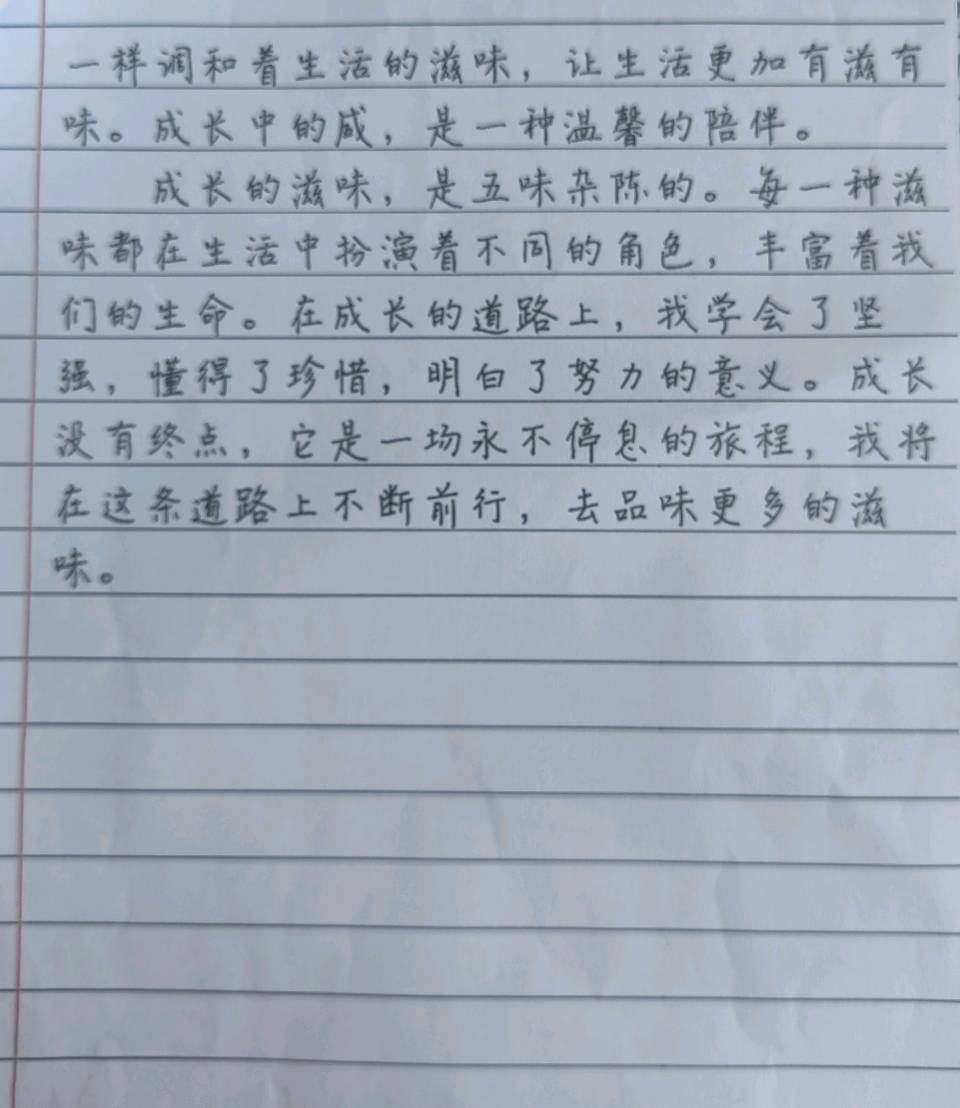 一样调和着生活的滋味，让生活更加有滋有
味。成长中的咸，是一种温馨的陪伴。
成长的滋味，是五味杂陈的。每一种滋
味都在生活中扮演着不同的角色，丰富着我
们的生命。在成长的道路上，我学会了坚
强，懂得了珍惜，明白了努力的意义。成长
没有终点，它是一场永不停息的旅程，我将
在这条道路上不断前行，去品味更多的滋
味。